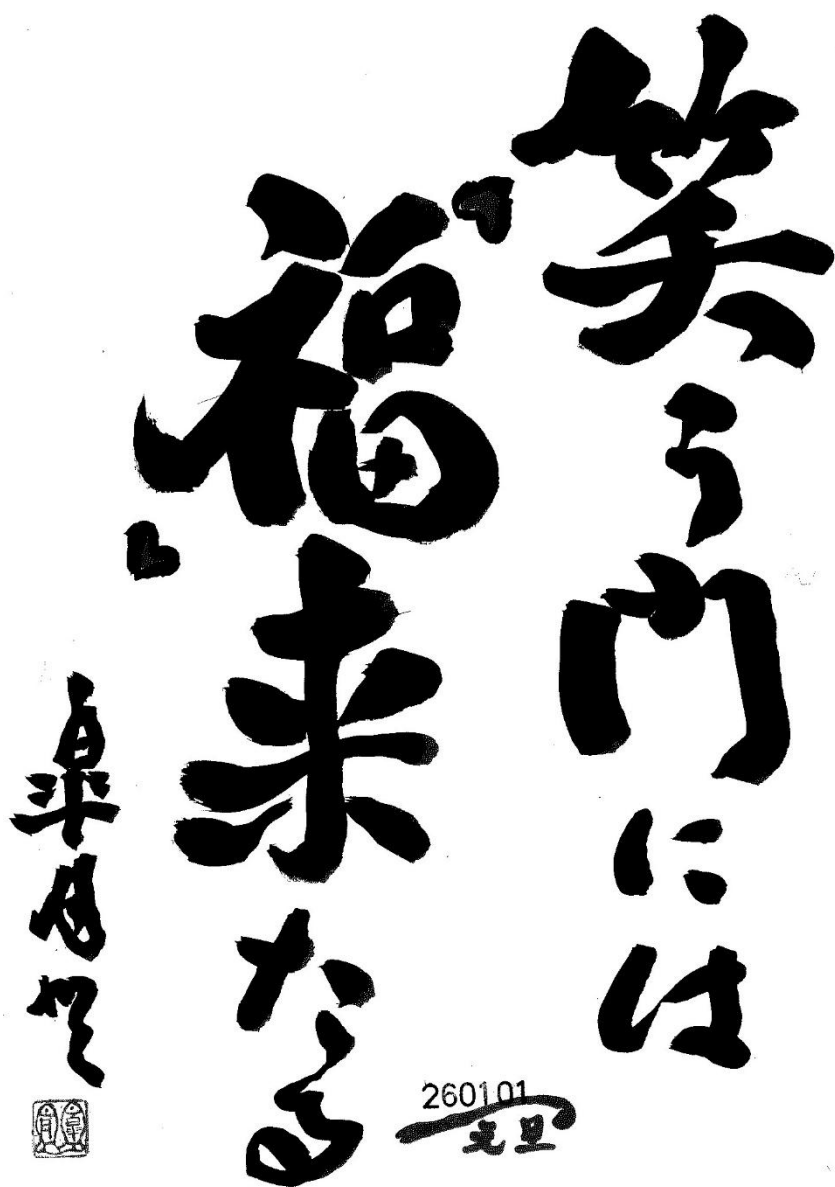 笑う門には
『福』来たる
皐月
260101
元旦